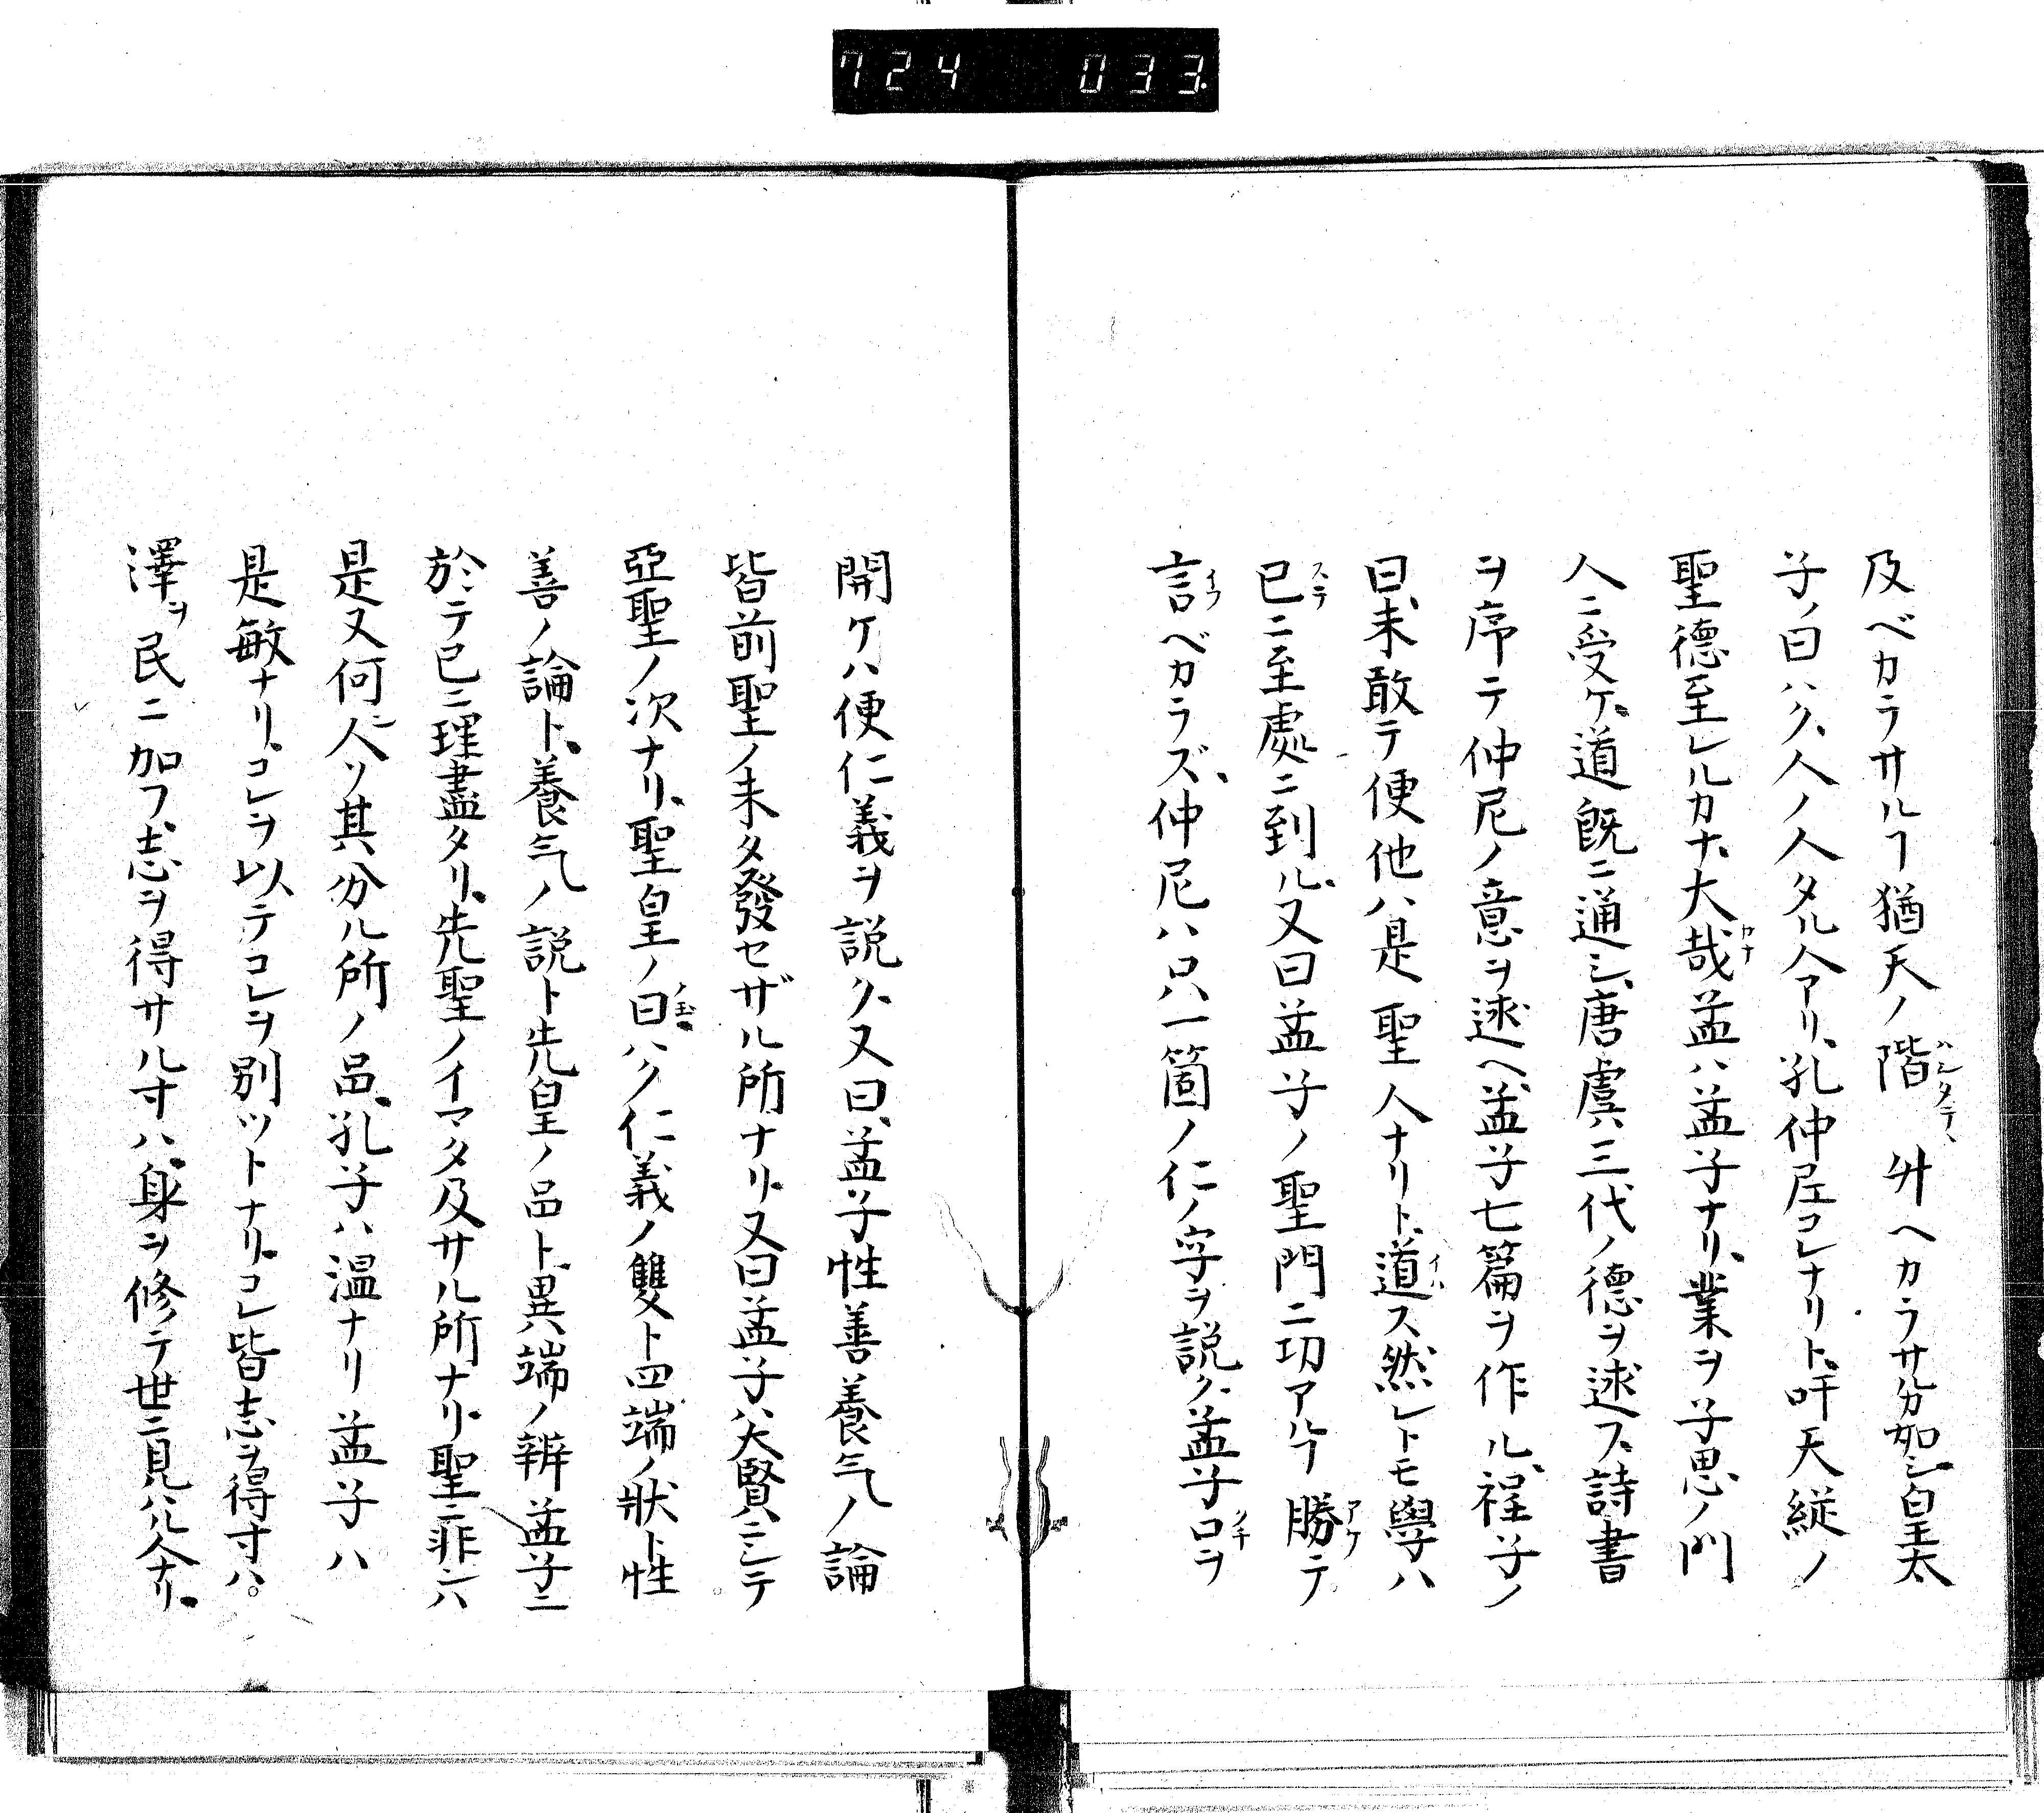 724 033
及ベカラサルヿ猶天ノ階 升ヘカラサルカ如シ皇太
子ノ曰ハク、人ノ人タル人アリ、孔仲尼コレナリト、吁天縦ノ
聖德至レルカナ、大哉孟ハ孟子ナリ、業ヲ子思ノ門
人ニ受ケ、道既ニ通シ、唐虞三代ノ德ヲ述ス、詩書
ヲ序テ仲尼ノ意ヲ述ヘ、孟子七篇ヲ作ル、程子ノ
曰、未敢テ便他ハ是聖人ナリト、道ス然レトモ學ハ
已ニ至處ニ到ル、又曰孟子ノ聖門ニ功アルヿ勝テ
言ベカラズ、仲尼ハ只一箇ノ仁ノ字ヲ説ク、孟子口ヲ
開ケハ便仁義ヲ説ク、又曰、孟子性善養气ノ論
皆前聖ノ未タ發セザル所ナリ、又曰孟子ハ大賢ニシテ
亞聖ノ次ナリ、聖皇ノ曰ハク仁義ノ雙ト四端ノ狀ト性
善ノ論ト、養气ノ説ト先皇ノ品ト、異端ノ辨孟子ニ
於テ已ニ理盡タリ、先聖ノイマタ及サル所ナリ、聖ニ非六
是又何人ソ其分ル所ノ品、孔子ハ温ナリ孟子ハ
是敏ナリ、コレヲ以テコレヲ別ツトナリ、コレ皆志ヲ得寸ハ。
澤ヲ民ニ加フ、志ヲ得サル寸ハ、身ヲ修テ世ニ見ハル人ナリ、